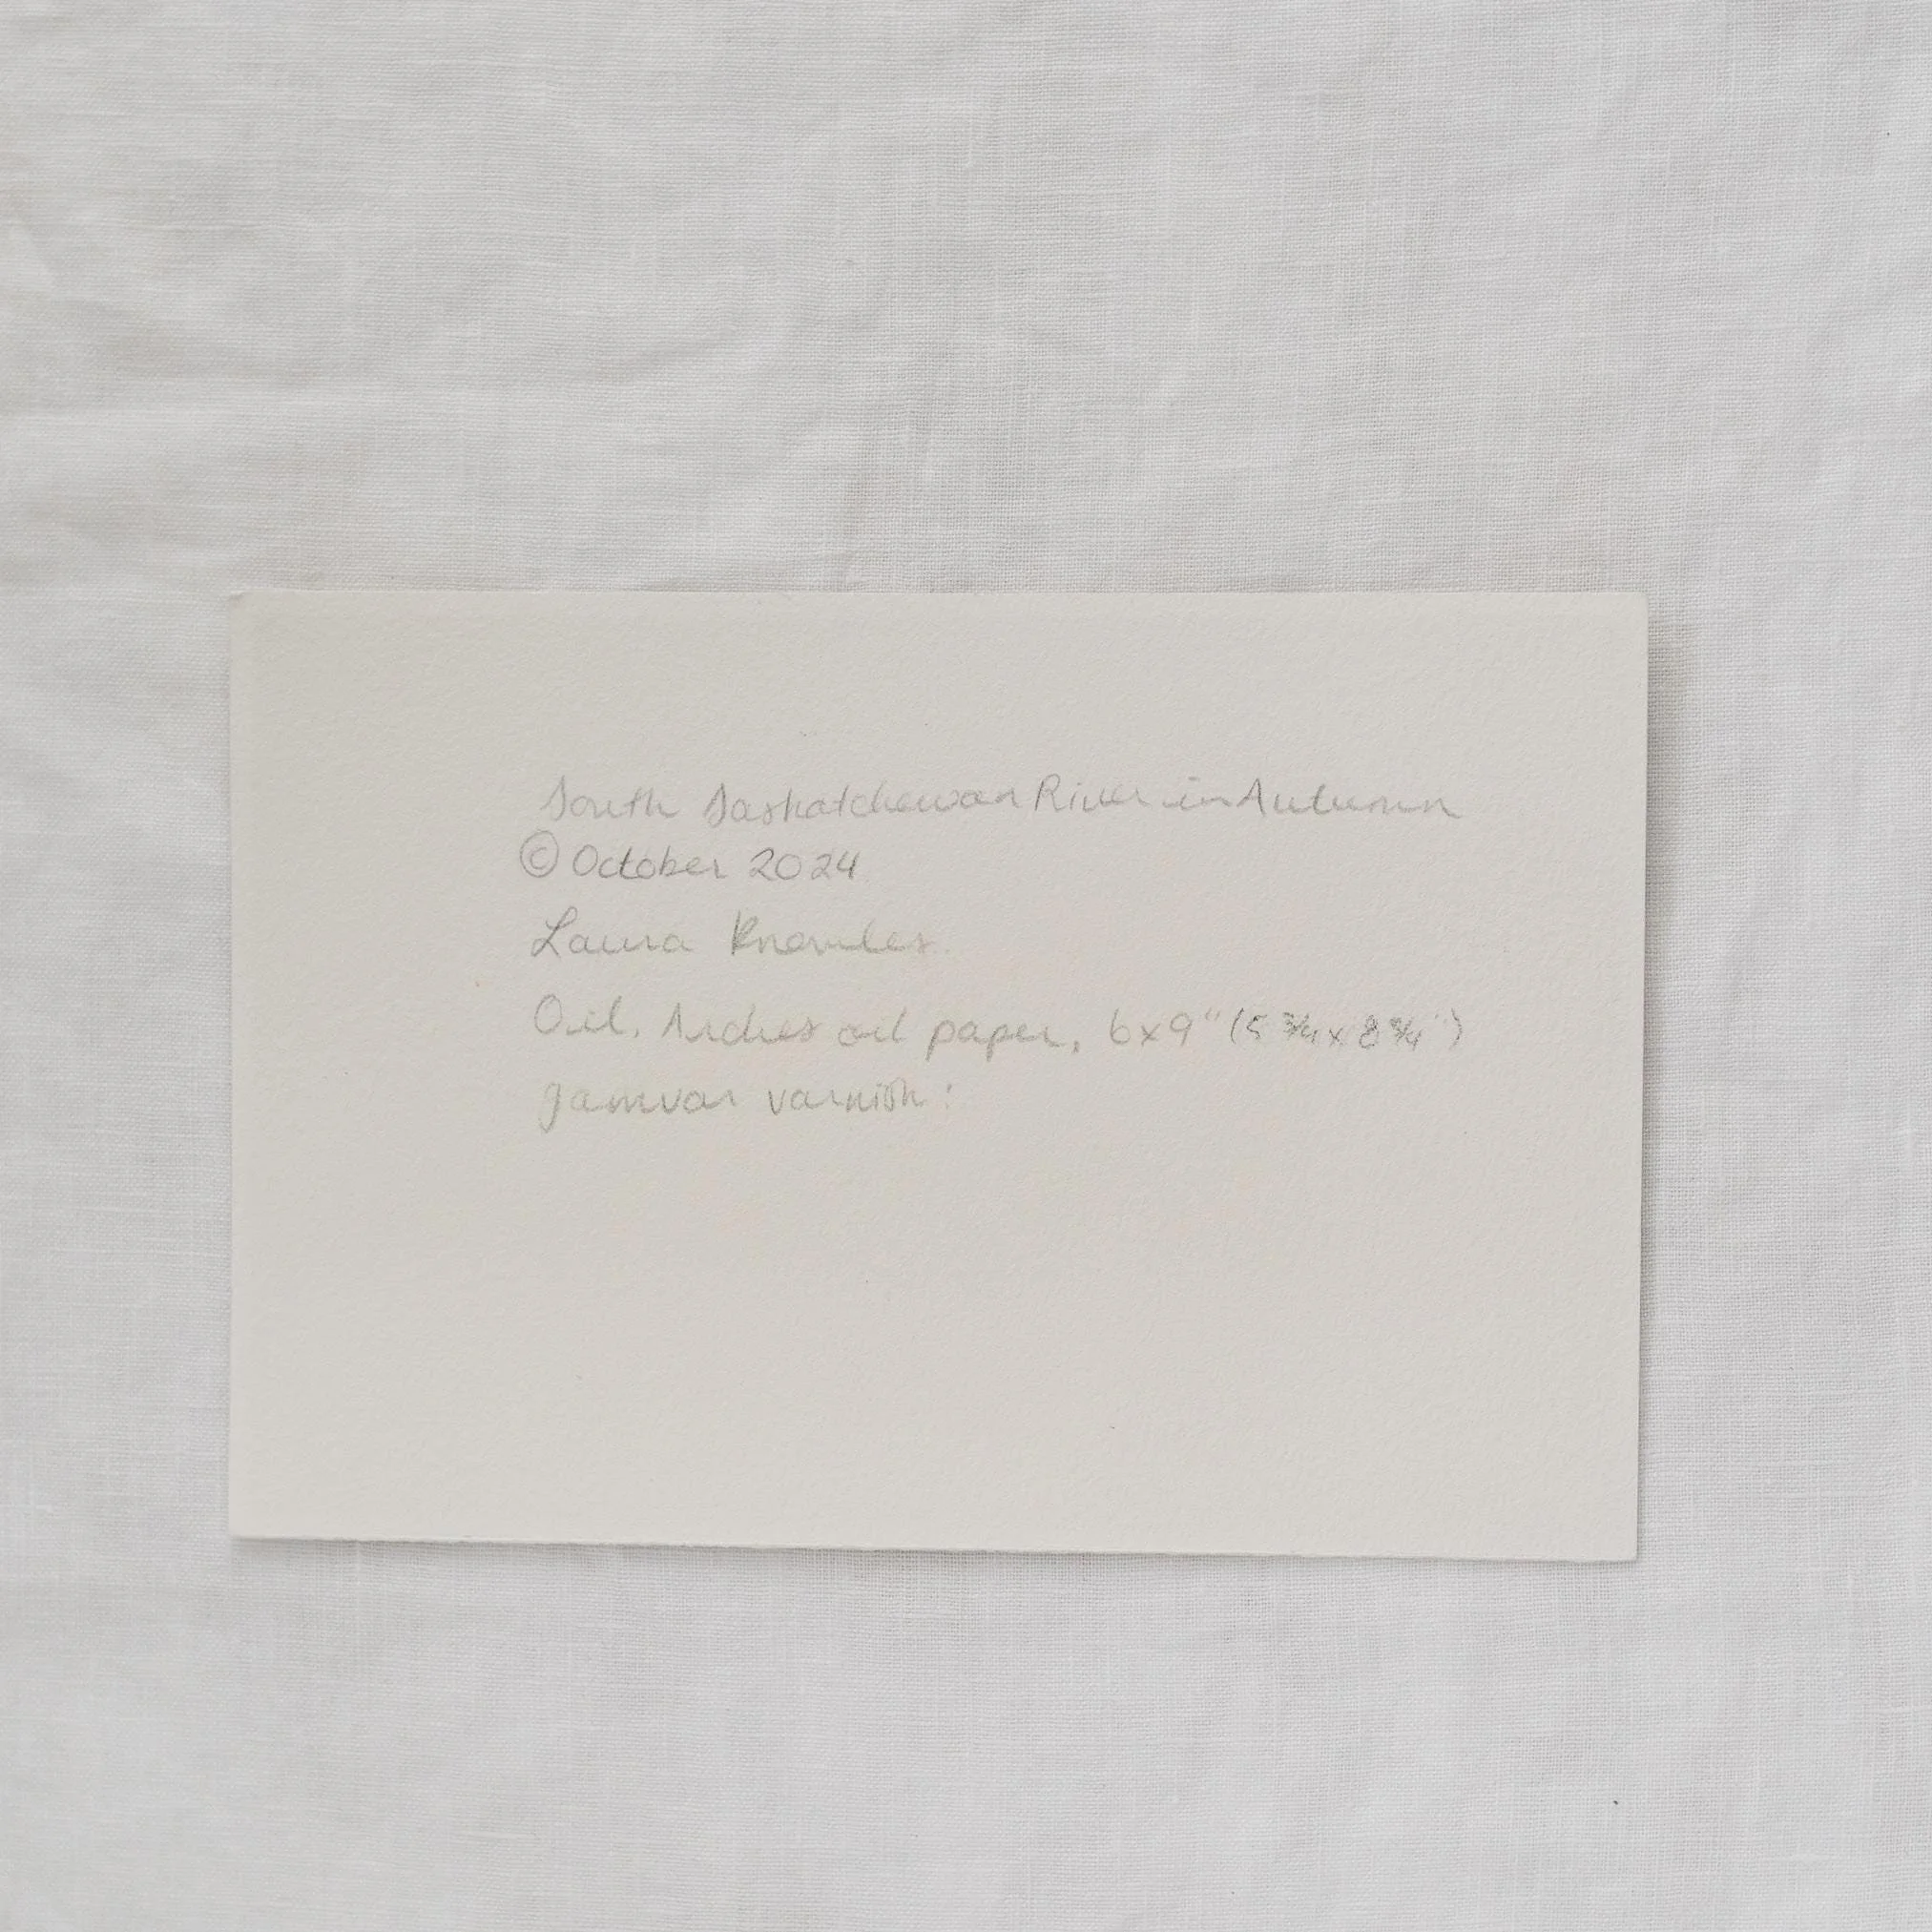 South Saskatchewan River in Autumn
© October 2024
Laura Knowles
Oil, Arches oil paper, 6x9" (5 3/4 x 8 3/4")
gamvar varnish: